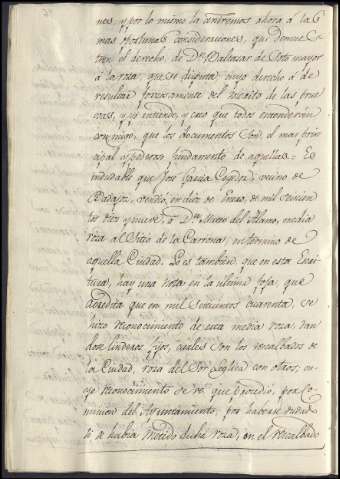 nes, y por lo mismo la contraemos ahora á las
mas oportunas consideraciones, que demues-
tren el derecho, de Dn. Baltasar de Soto mayor
á la roza, que se disputa: cuyo derecho á de
resultar precisamente del mérito de las prue
vas, y yó entiendo, y creo que todos entenderán
conmigo, que los documentos son el mas prin
cipal y poderoso fundamento de aquellas. Es
indudable que José Garcia vecino de
Badajoz, vendió, en diez de Enero, de mil setecien
tos diez y nueve, á Dn. del Alamo, media
roza al Sitio de la termino de
aquella Ciudad. Lo es tambien que en esta Escri-
tura, hay una nota en la ultima foja, que
acredita que en mil setecientos cuarenta, se
hizo reconocimiento de esta media roza dan
dole linderos, fijos, cuales son los recaldados de
la Ciudad, roza del con otros; cu-
yo reconocimto. se vé que procedió, por Co-
mision del Ayuntamiento, por haberse dudado
si se habia metido dicha roza, en el